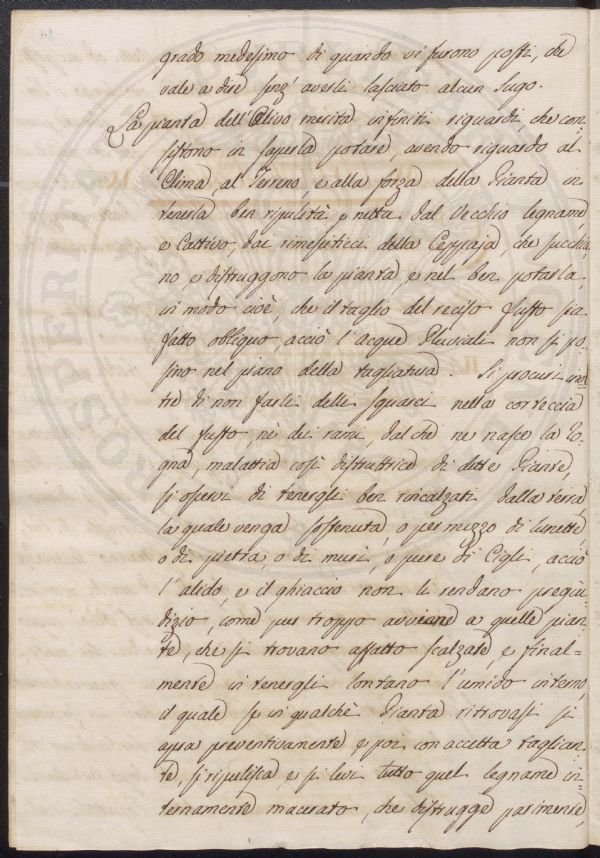 grado medesimo di quando vi furono posti, che
vale a dire senz' averli lasciato alcun sugo.
La pianta dell'Olivo merita infiniti riguardi, che con=
sistono in saperla potare, avendo riguardo al
Clima, al Terreno, e alla forza della Pianta in
tenerla ben ripulita e netta dal Vecchio legname
e Cattivo, dai rimessiticci della Ceppaja, che succhia=
no e distruggono la pianta, e nel ben potarla
in modo cioè, che il taglio del reciso fusto sia
fatto obliquo, acciò l'acque Pluviali non si po=
sino nel piano della tagliatura. Si procuri inol=
tre di non farli delli squarci nella correccia
del fusto, nè dei rami, dal che ne nasce la Ro=
gna, malattia così distruttrice di dette Piante,
si osservi di tenergli ben rincalzati dalla terra,
la quale venga sostenuta, o per mezzo di lunette
o di pietra, o di muri, o pure di Cigli, acciò
l'alido, e il ghiaccio non li rendano pregiu=
dizio, come pur troppo avviene a quelle pian=
te, che si trovano affatto scalzate, e final=
mente in tenergli lontano l'umido interno
il quale se in qualche Pianta ritrovasi si
apra preventivamente e poi con accetta taglian=
te, si ripulisca, e si levi tutto quel legname in=
ternamente macerato, che distrugge parimente,